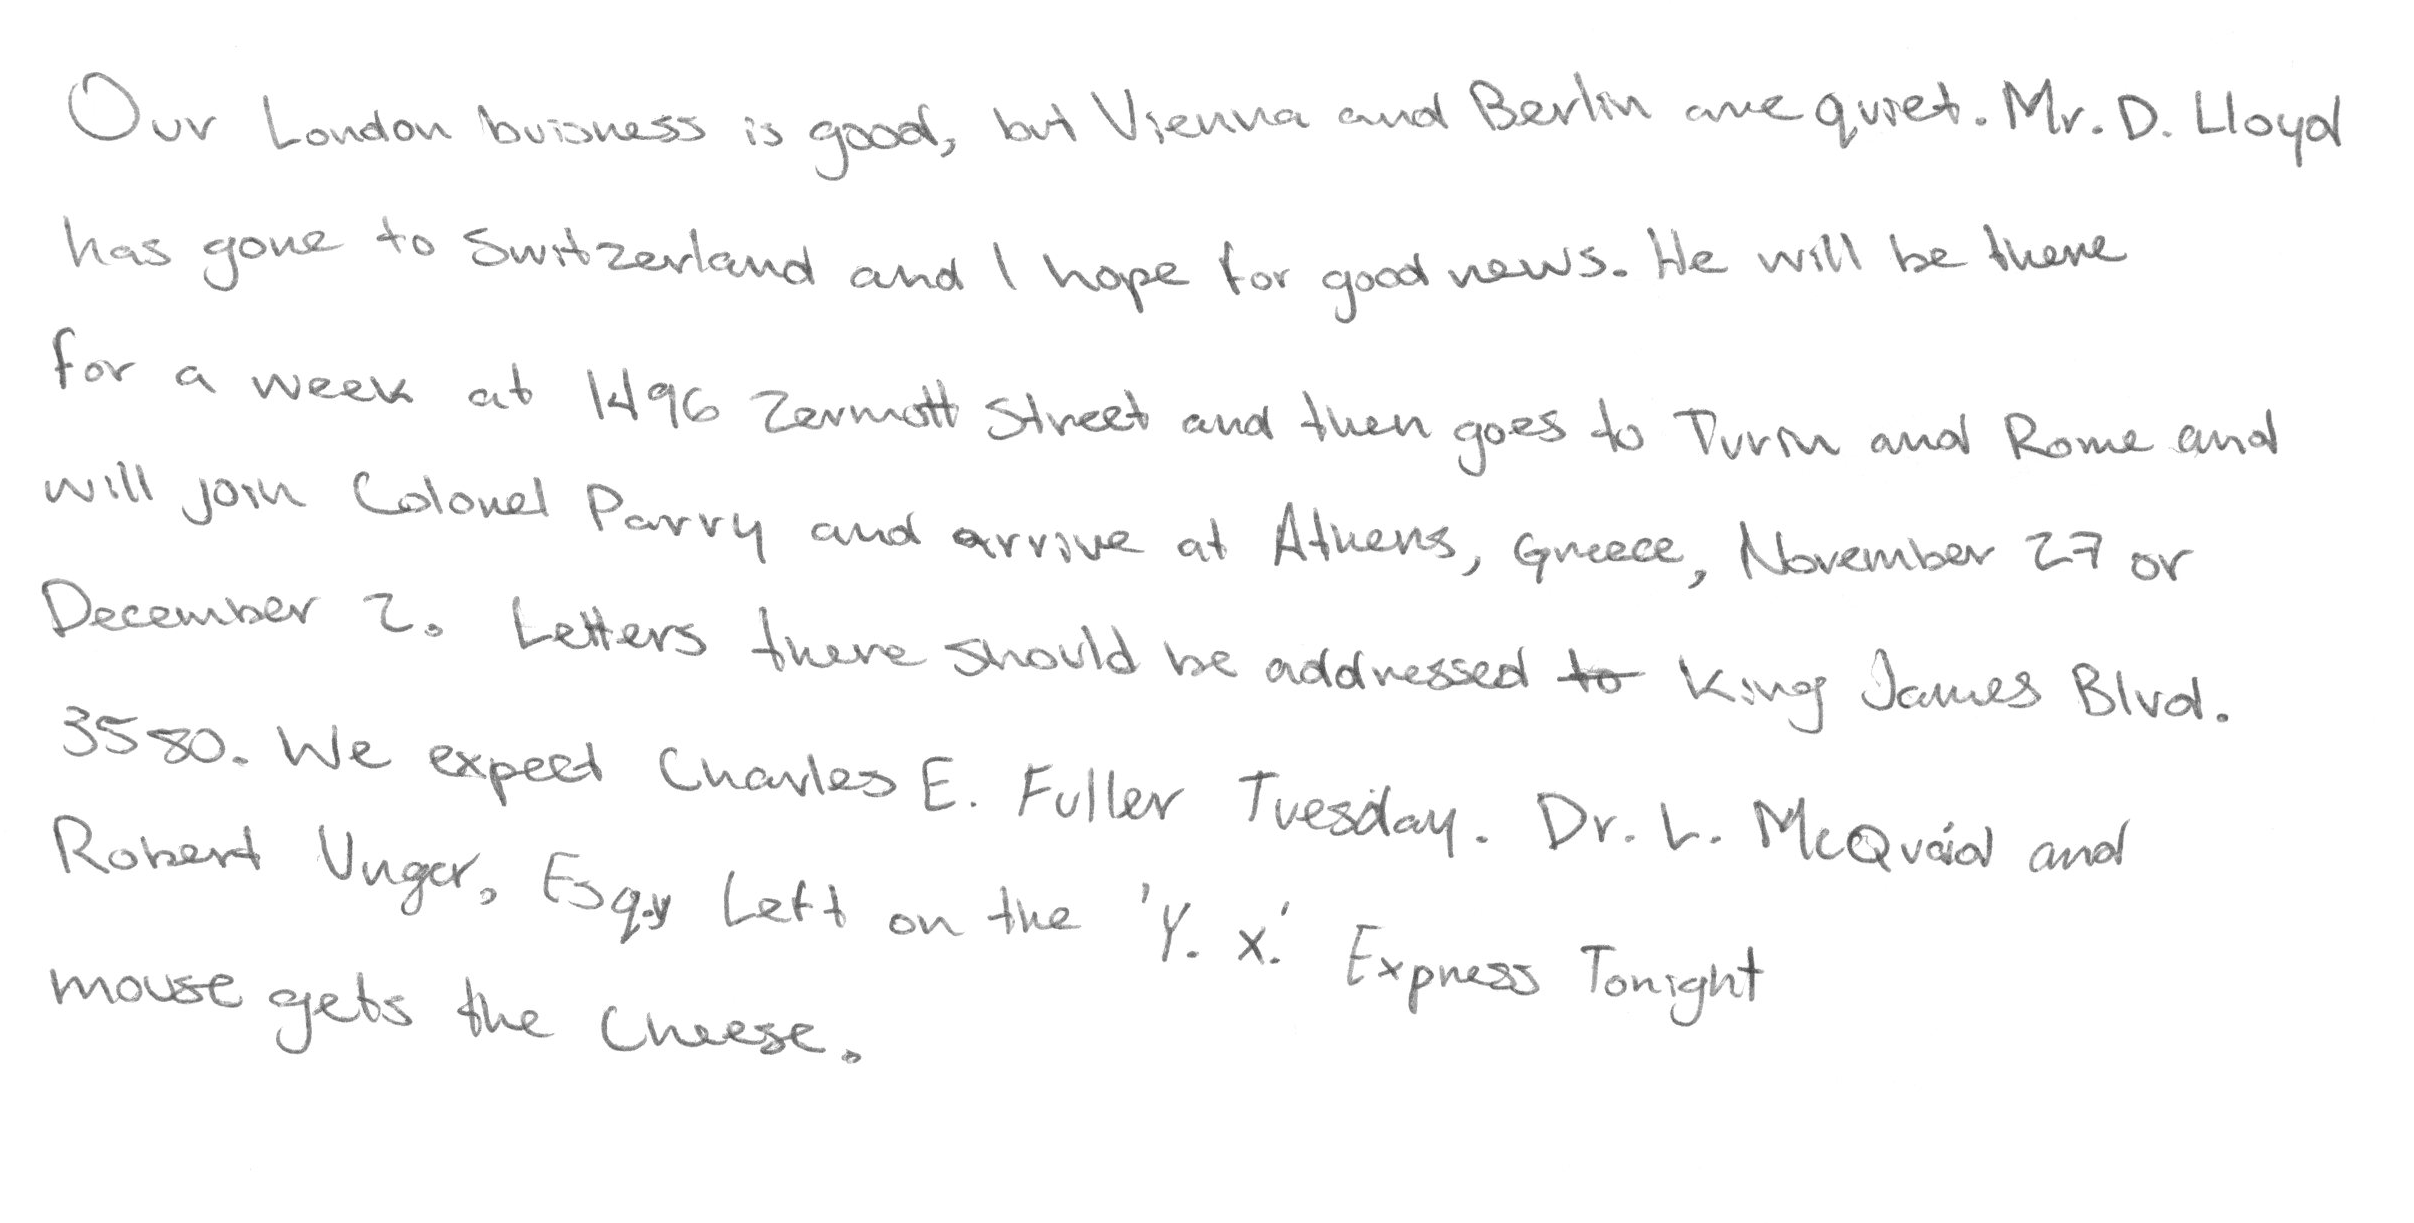 Our London buisness is good, but Vienna and Berlin are quiet. Mr. D. Lloyd
has gone to Switzerland and I hope for good news. He will be there
for a week at 1496 Zermott Street and then goes to Turin and Rome and
will join Colonel Parry and arrive at Athens, Greece, November 27 or
December 2. Letters there should be addressed to King James Blvd.
3580. We expect Charles E. Fuller Tuesday. Dr. L. McQuaid and
Robert Unger, Esq.y Left on the 'Y. X.' Express Tonight
mouse gets the cheese.